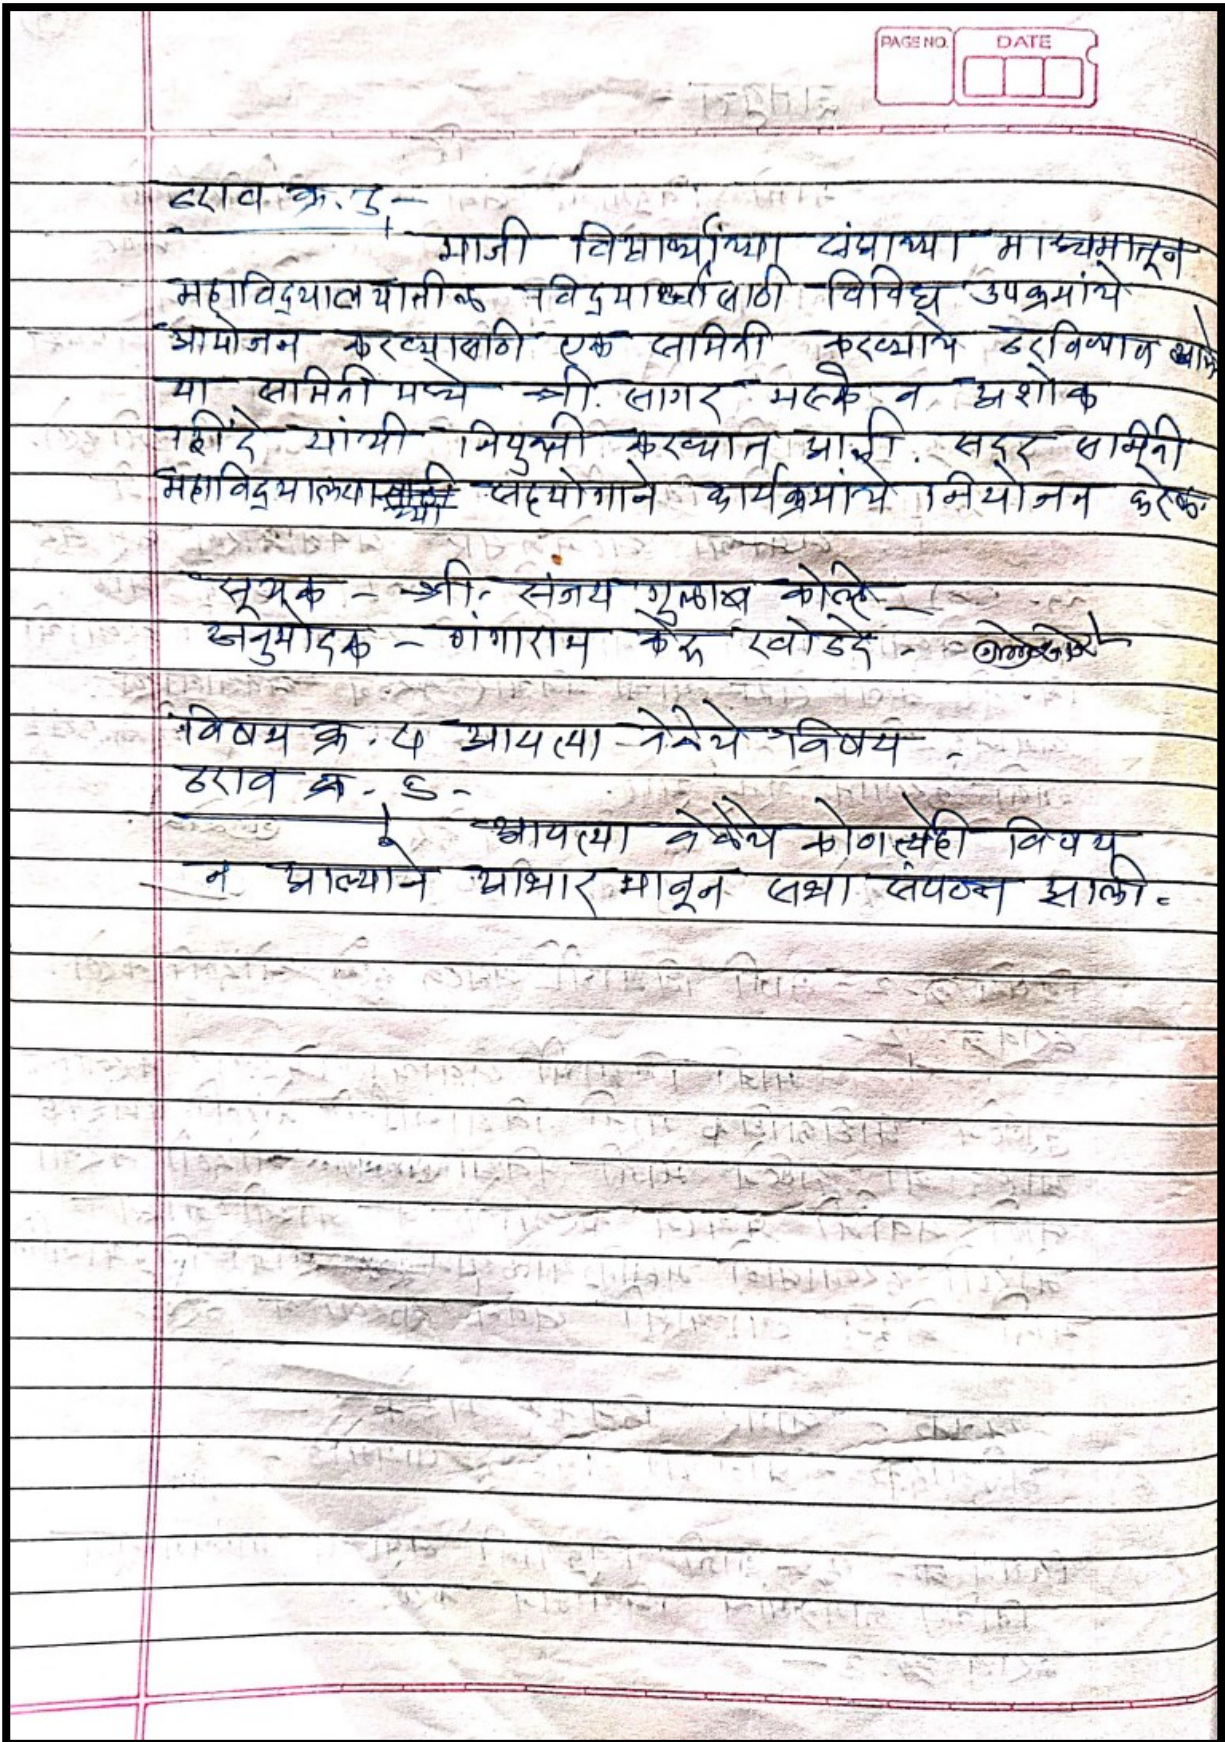 PAGE NO. DATE
ठराव क्र. ३ -
माजी विद्यार्थ्यांच्या संघाच्या माध्यमातून
महाविद्यालयातील विद्यार्थ्यांसाठी विविध उपक्रमांचे
आयोजन करण्यासाठी एक समिती करण्याचे ठरविण्यात आले
या समिती मध्ये श्री. सागर मस्के व अशोक
शिंदे यांची नियुक्ती करण्यात आली. सदर समिती
महाविद्यालयाच्या सहयोगाने कार्यक्रमांचे नियोजन करेल.
सूचक - श्री. संजय गुलाब कोल्हे
अनुमोदक - गंगाराम केरू खोडदे -
विषय क्र. ४ आयत्या वेळेचे विषय.
ठराव क्र. ४ -
आयत्या वेळेचे कोणत्येही विषय
न आल्याने आभार मानून सभा संपन्न झाली.